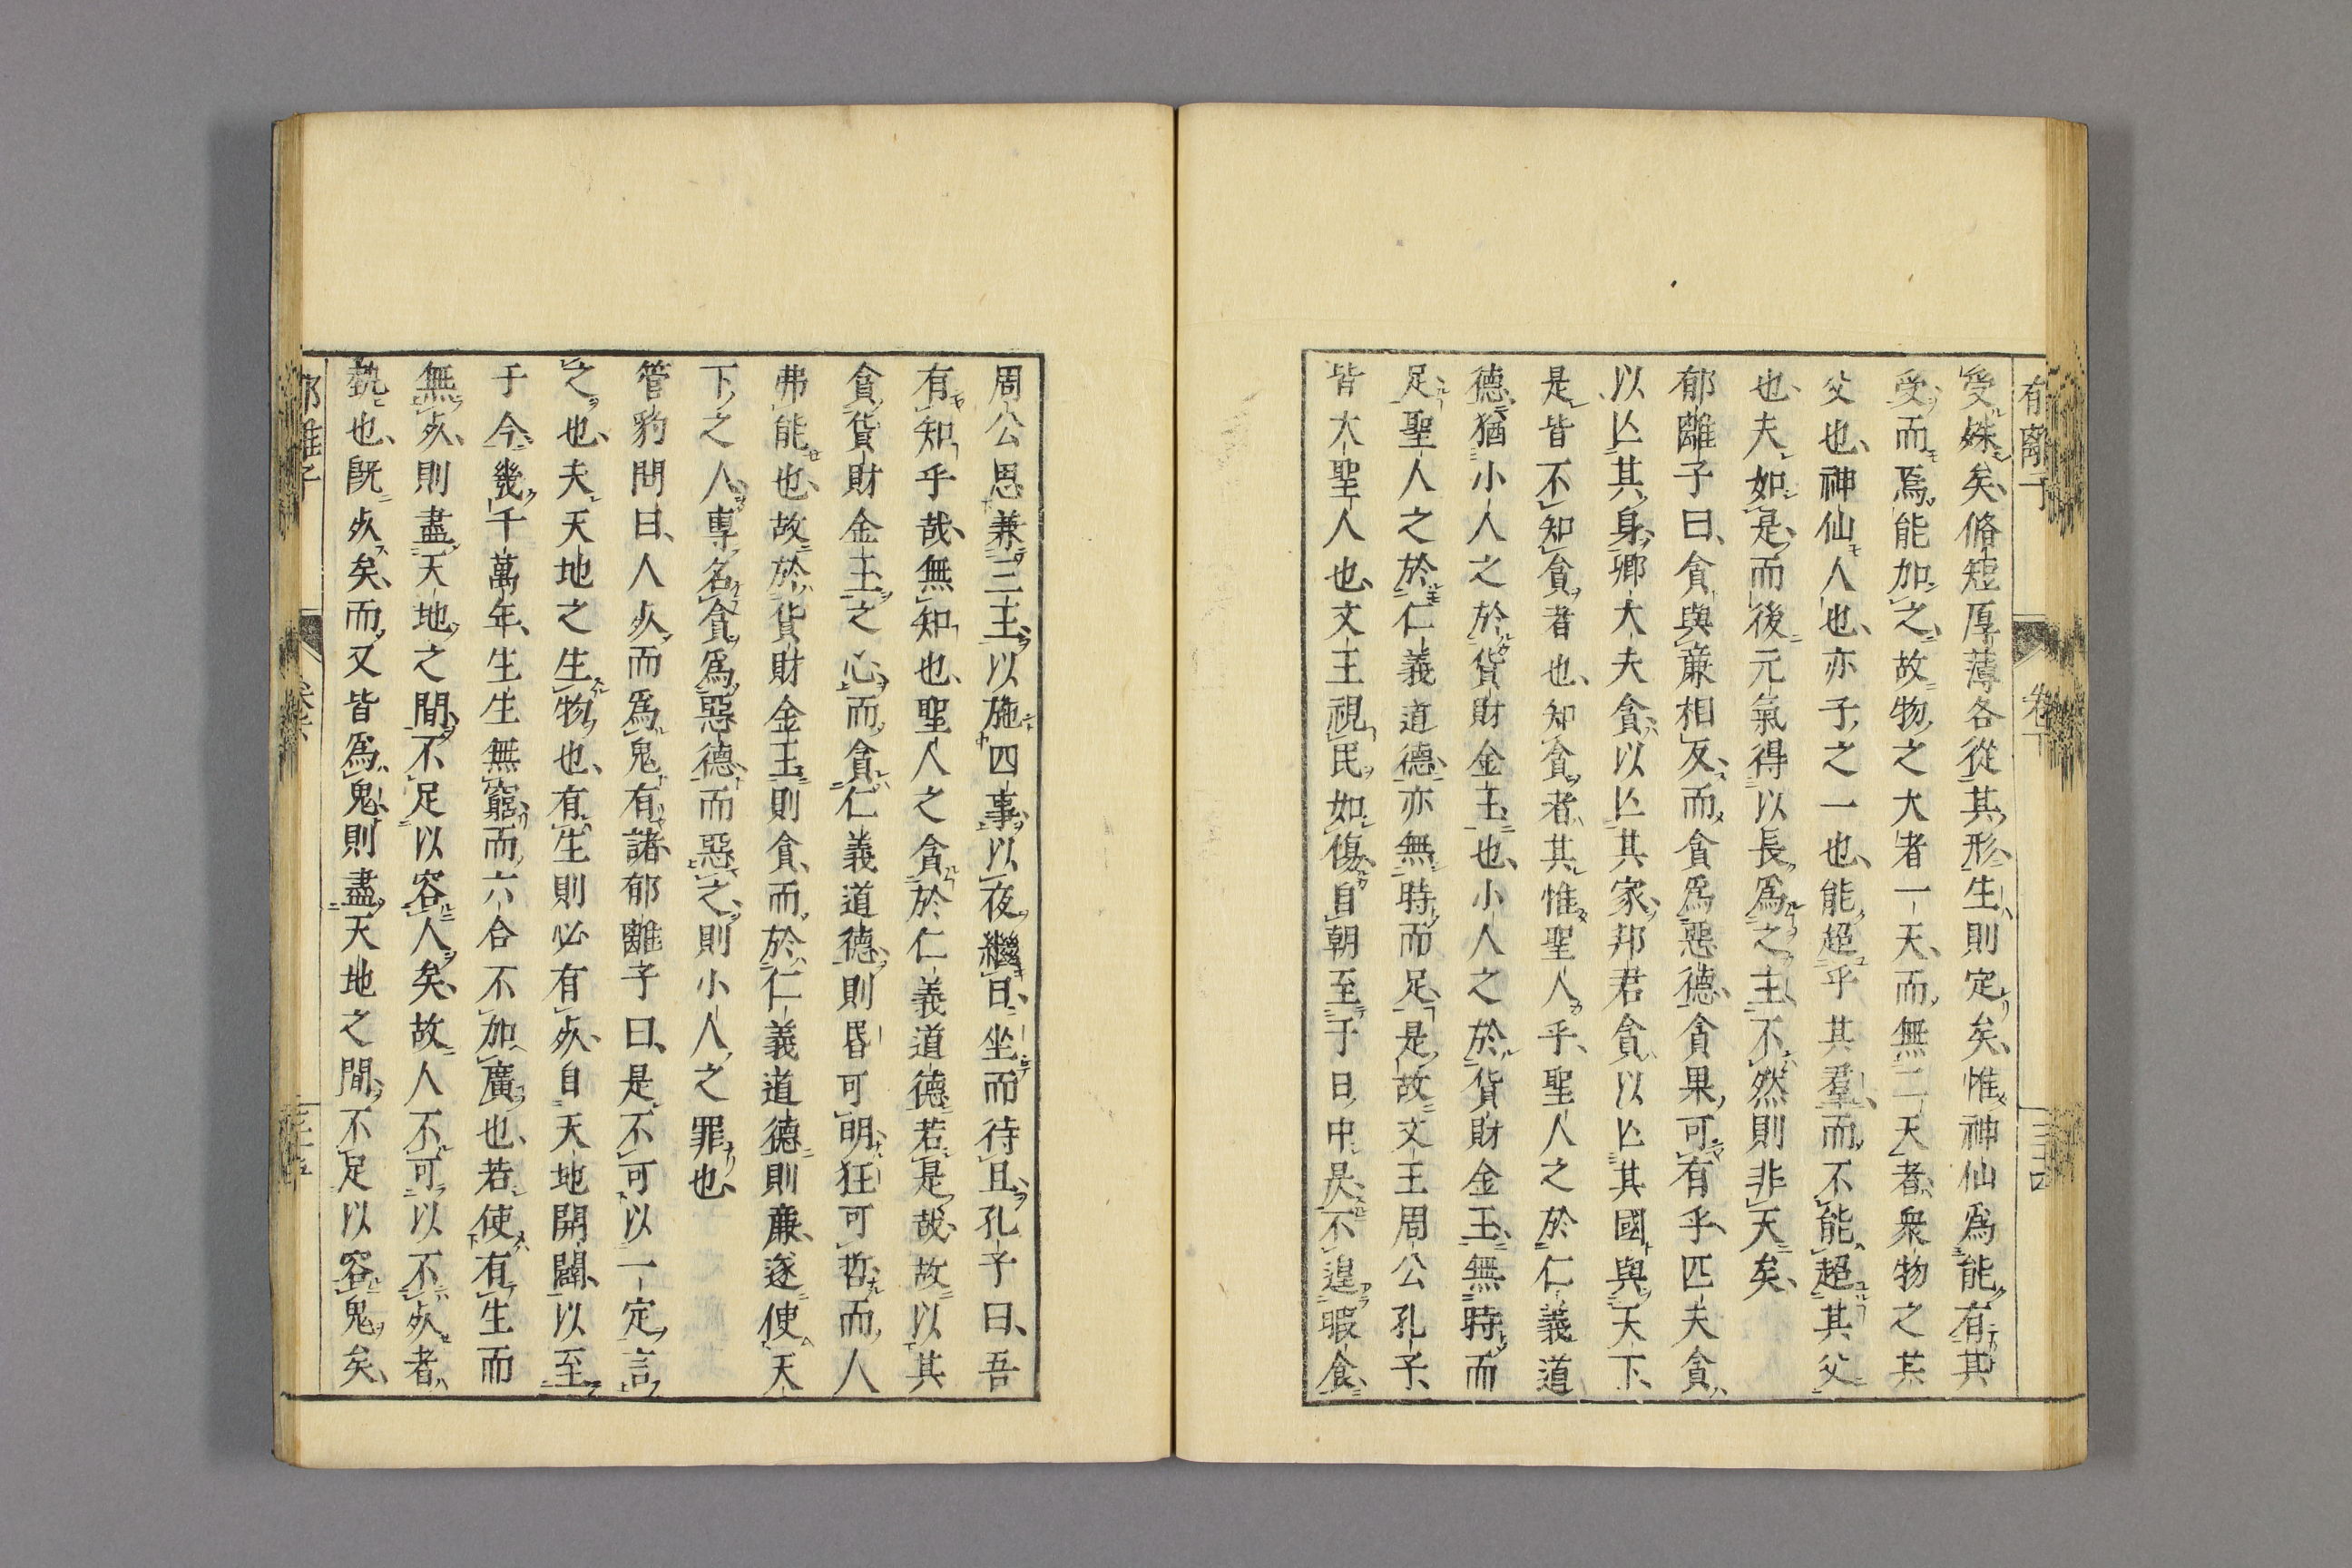 郁離子 卷下 三十四
受姝矣脩短厚薄各從其形生則定矣惟神仙爲能有其
受而焉能加之故物之大者一天而無二天者衆物之共
父也神仙人也亦子之一也能超乎其羣而不能超其父
也夫如是而後元氣得以長爲之主不然則非天矣
郁離子曰貪與廉相反而貪爲惡德貪果可有乎匹夫貪
以亾其身卿大夫貪以亾其家邦君貪以亾其國與天下
是皆不知貪者也知貪者其惟聖人乎聖人之於仁義道
德猶小人之於貨財金玉也小人之於貨財金玉無時而
足聖人之於仁義道德亦無時而足是故文王周公孔子
皆大聖人也文王視民如傷自朝至于日中昃不遑暇食
周公思兼三王以施四事以夜繼日坐而待旦孔子曰吾
有知乎哉無知也聖人之貪於仁義道德若是哉故以其
貪貨財金玉之心而貪仁義道德則昏可明狂可哲而人
弗能也故於貨財金玉則貪而於仁義道德則廉遂使天
下之人專名貪爲惡德而惡之則小人之罪也
管豹問曰人㱙而爲鬼有諸郁離子曰是不可以一定言
之也夫天地之生物也有生則必有㱙自天地開闢以至
于今幾千萬年生生無窮而六合不加廣也若使有生而
無㱙則盡天地之間不足以容人矣故人不可以不㱙者
埶也旣㱙矣而又皆爲鬼則盡天地之間不足以容鬼矣
郁離子